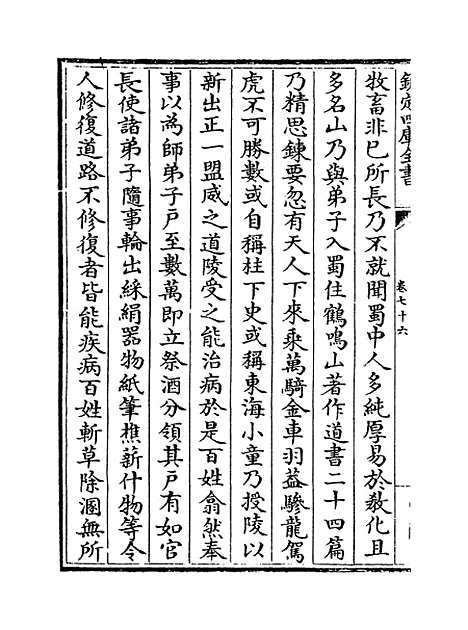 欽定四庫全書
卷七十六
牧畜非已所長乃不就聞蜀中人多純厚易於教化且
多名山乃與弟子入蜀住鶴鳴山著作道書二十四篇
乃精思鍊要忽有天人下來乘萬騎金車羽蓋驂龍駕
虎不可勝數或自稱柱下史或稱東海小童乃授陵以
新出正一盟威之道陵受之能治病於是百姓翕然奉
事以為師弟子戶至數萬即立祭酒分領其戶有如官
長使諸弟子隨事輪出綵絹器物紙筆樵薪什物等令
人修復道路不修復者皆能疾病百姓斬草除溷無所